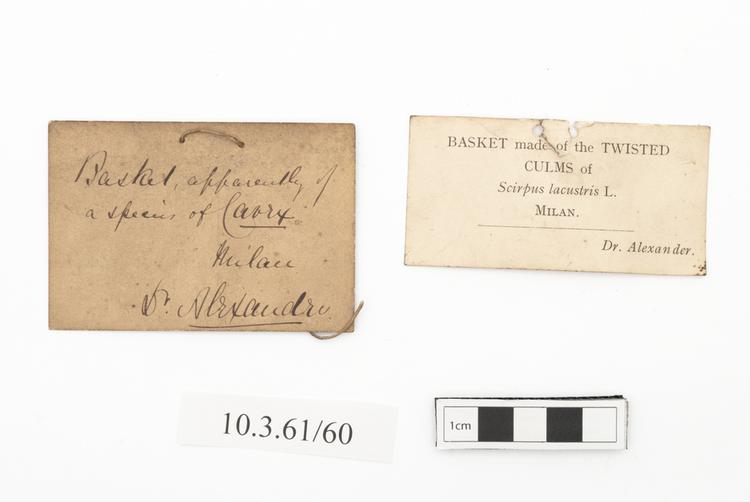 Basket, apparently of
a species of Carex.
Milan
Dr. Alexander.
BASKET made of the TWISTED
CULMS of
Scirpus lacustris L.
MILAN.
Dr. Alexander.
10.3.61/60
1cm